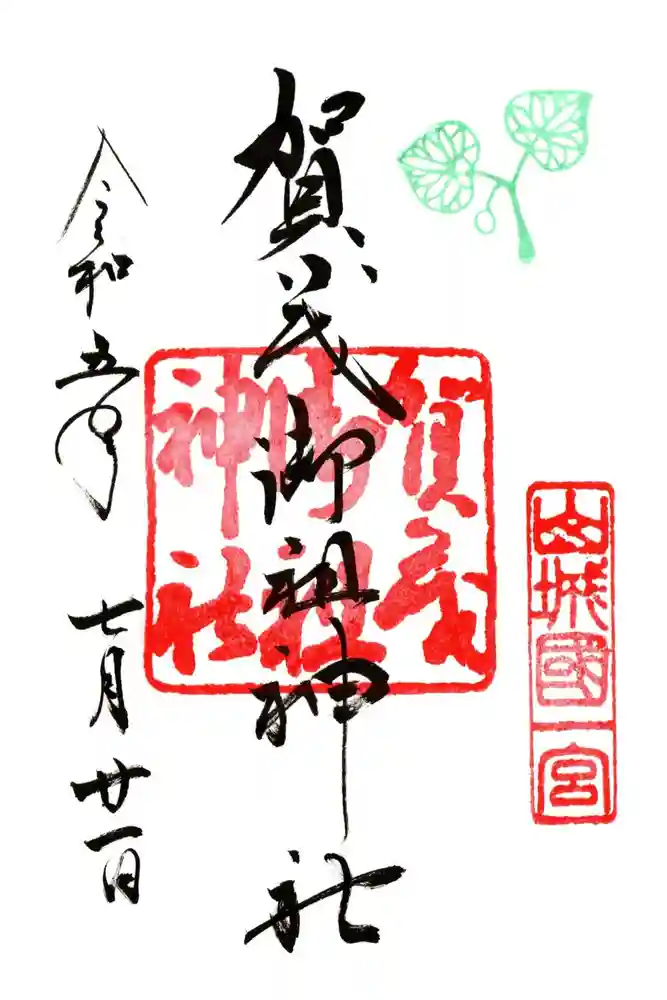 山城國一宮
賀茂御祖神社
賀茂御祖神社
令和五年
七月廿一日